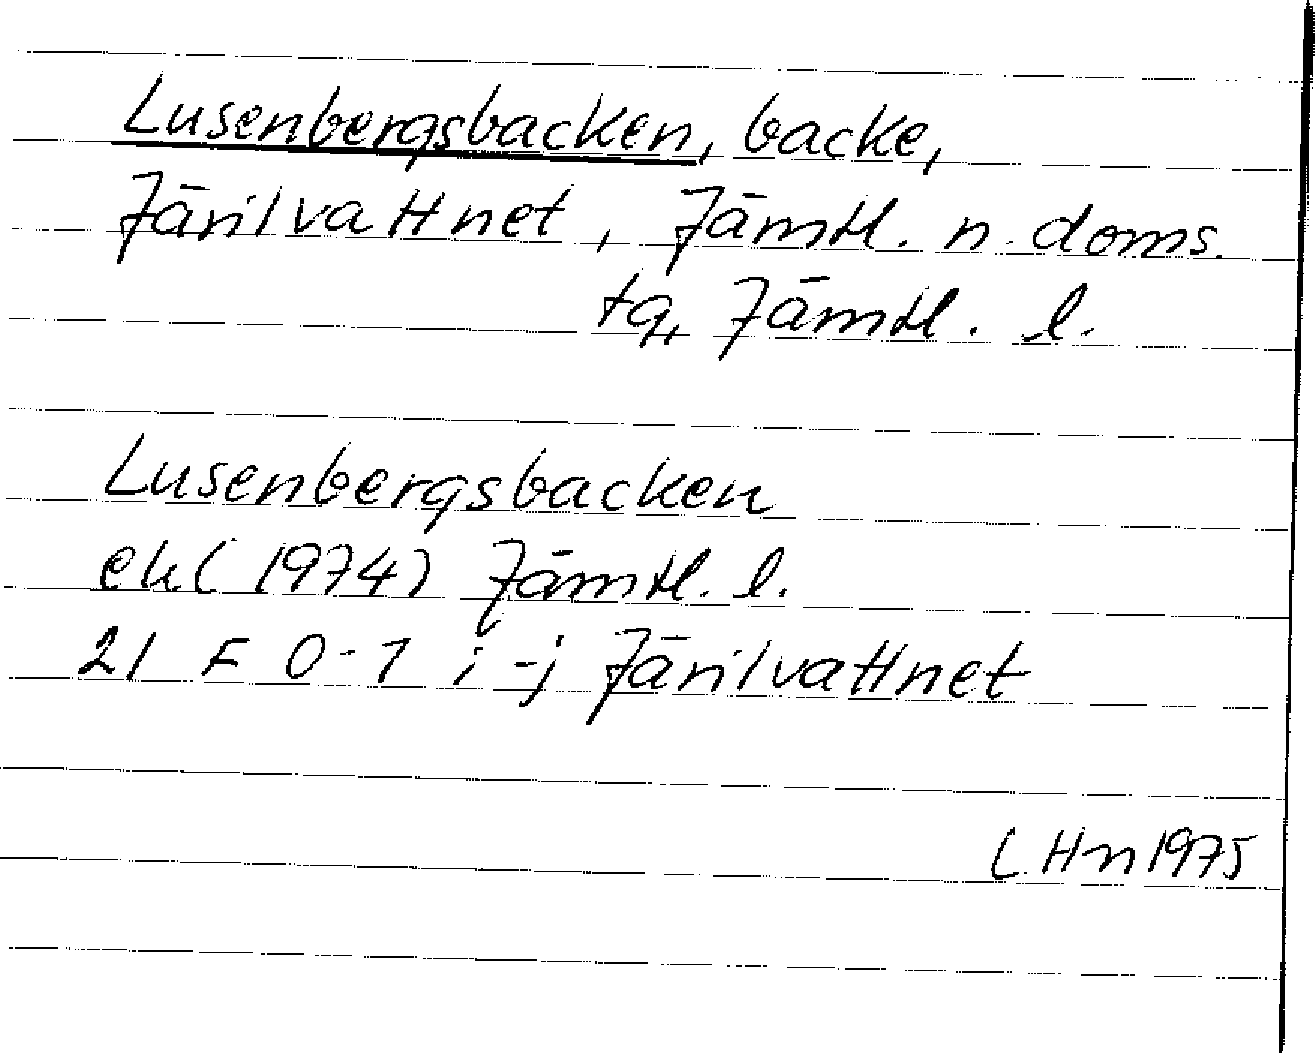 Lusenbergsbacken, backe,
Järilvattnet, Jämtl. n. doms.
tg, Jämtl. l.
Lusenbergsbacken
ek (1974) Jämtl. l.
21 F 0-1 i-j Järilvattnet
L Hn 1975